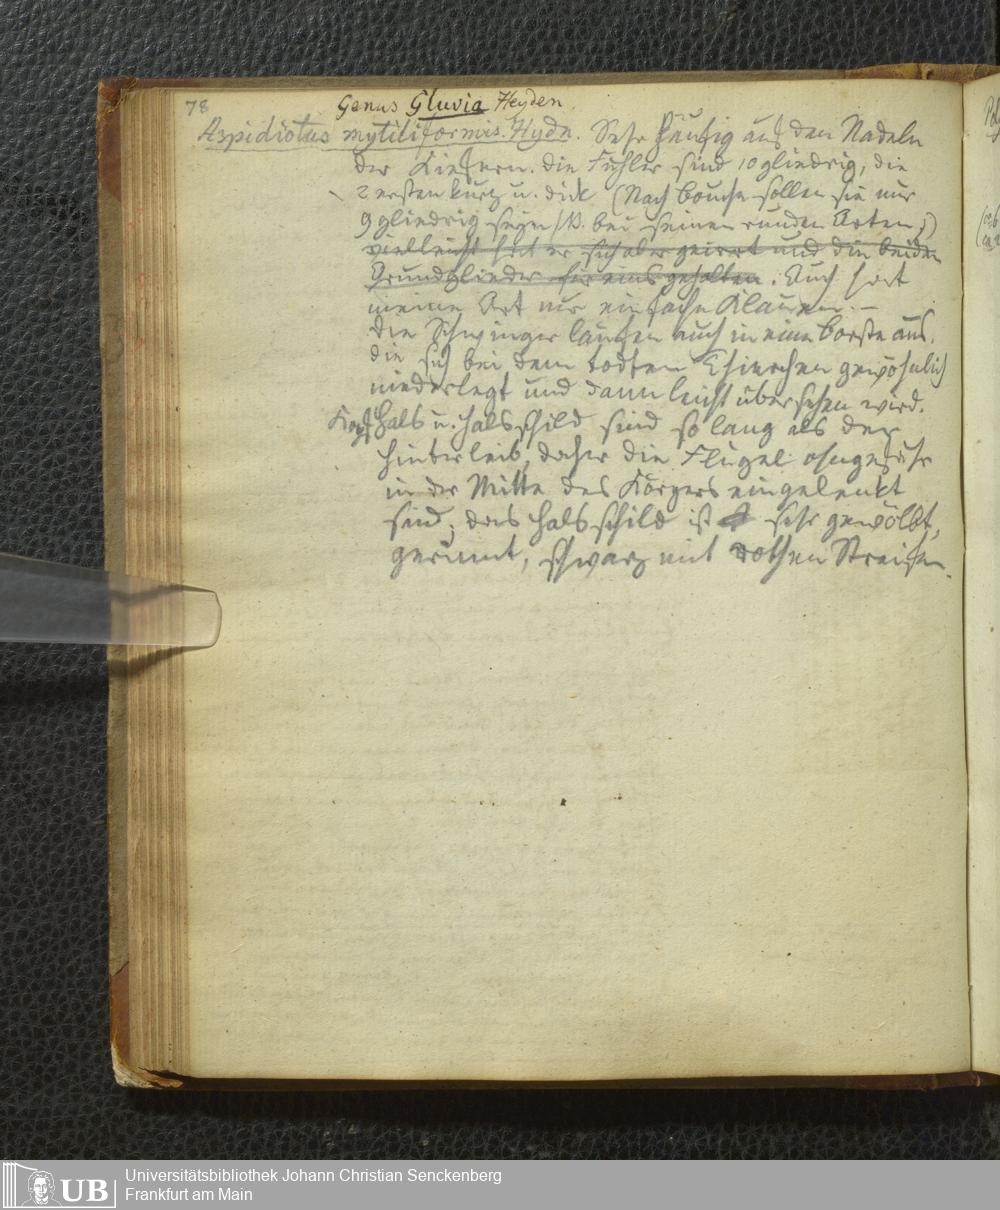 78
Genus Gluvia Heyden.
Aspidiotus mytiliformis. Heyd. Sehr häufig auf den Nadeln
der Kiefern. die Fühler sind 10 gliedrig, die
2 ersten kurz u. dick (Nach Bouché sollen sie nur
9 gliedrig seyn bei seinen runden Arten;)
vielleicht hat er sich aber geirrt und die beiden
Grundglieder für eins gehalten. Auch hat
meine Art nur einfache Klauen. –
die Schwinger laufen auch in eine Borste aus,
die sich bei dem todten Thierchen gewöhnlich
niederlegt und dann leicht übersehen wird.
Kopf Hals u. Halsschild sind so lang als der
Hinterleib, daher die Flügel ohngefähr
in der Mitte des Körpers eingelenkt
sind; das Halsschild ist sehr gewölbt,
schwarz mit rothen Streifen.
UB
Universitätsbibliothek Johann Christian Senckenberg
Frankfurt am Main